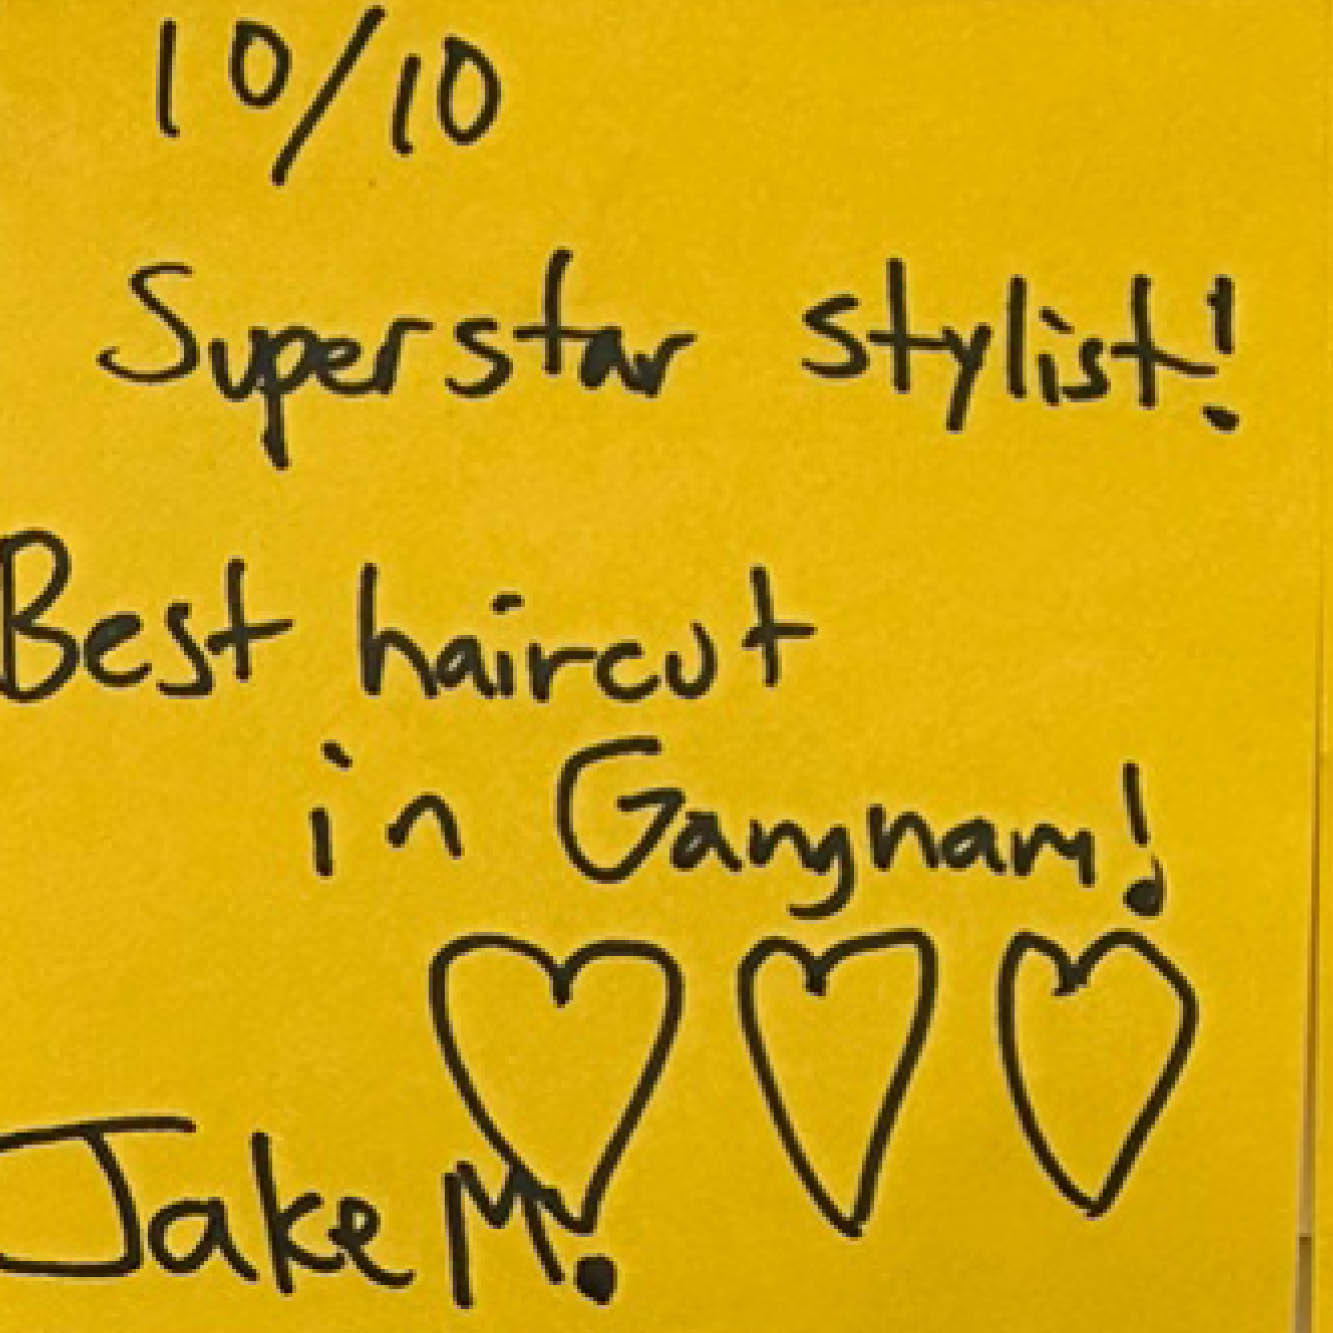 10/10
Superstar stylist!
Best haircut
in Gangnam!
♡ ♡ ♡
Jake M.